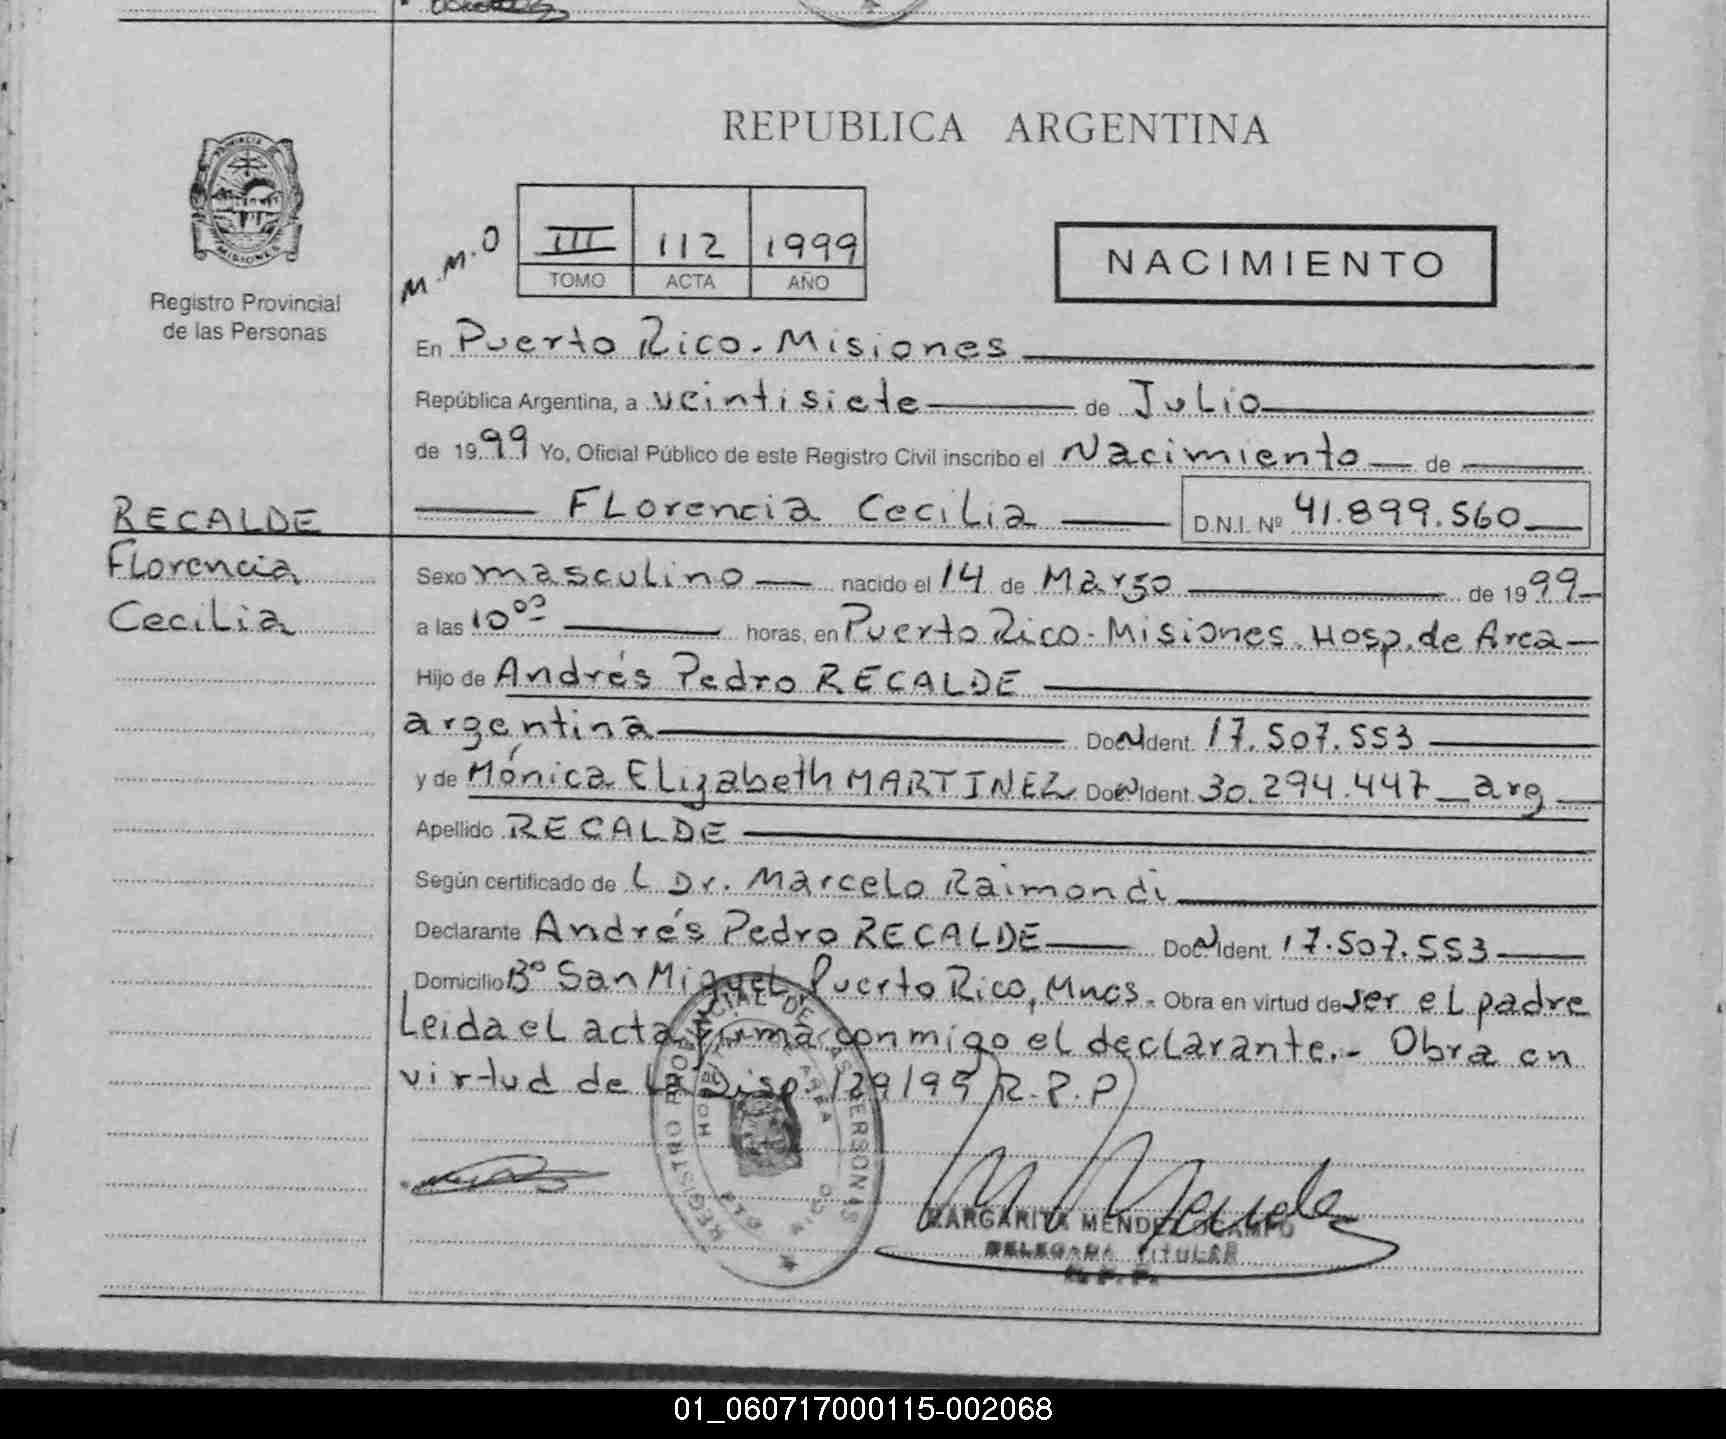 REPUBLICA ARGENTINA
PROVINCIA
MISIONES
Registro Provincial
de las Personas
M.M.O
III 112 1999
TOMO ACTA AÑO
NACIMIENTO
En Puerto Rico. Misiones
República Argentina, a veintisiete de Julio
de 1999 Yo, Oficial Público de este Registro Civil inscribo el Nacimiento de
Florencia Cecilia D.N.I. Nº 41.899.560
RECALDE
Florencia
Cecilia
Sexo masculino nacido el 14 de Marzo de 1999
a las 10⁰⁰ horas, en Puerto Rico. Misiones. Hosp. de Area
Hijo de Andrés Pedro RECALDE
argentina Doc. Ident. 17.507.553
y de Mónica Elizabeth MARTINEZ Doc. Ident. 30.294.447 arg
Apellido RECALDE
Según certificado de L Dr. Marcelo Raimondi
Declarante Andrés Pedro RECALDE Doc. Ident. 17.507.553
Domicilio Bº San Miguel Puerto Rico, Mnes. Obra en virtud de ser el padre
Leida el acta firma conmigo el declarante.- Obra en
virtud de la Disp. 129/99 R.P.P
REGISTRO PROVINCIAL DE LAS PERSONAS
PTO RICO
MARGARITA MENDEZ OCAMPO
DELEGADA TITULAR
R.P.P.
01_060717000115-002068